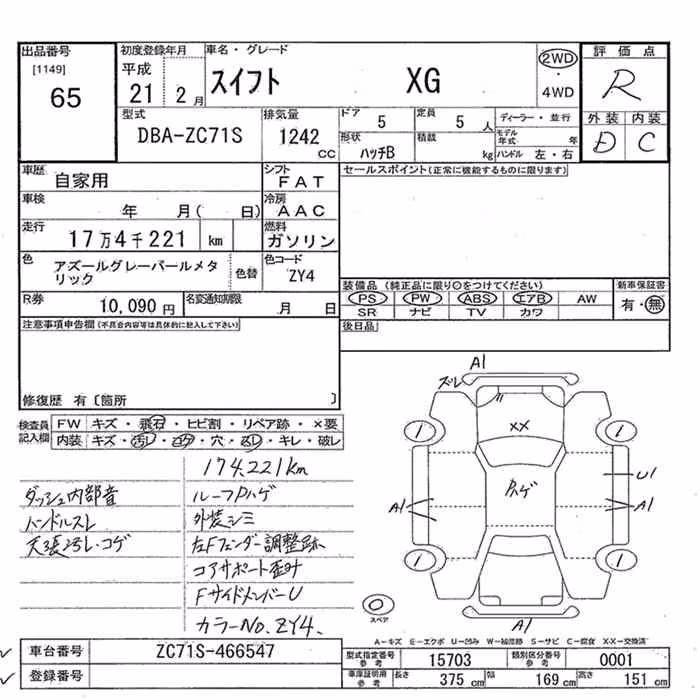 出品番号 初度登録年月 車名・グレード 評価点
[1149] 平成 2WD
65 21 2月 スイフト XG 4WD R
型式 排気量 ドア 5 定員 5人 ディーラー・並行 外装 内装
DBA-ZC71S 1242cc 形状 ハッチB 積載 kg モデル年式 年 D C
ハンドル 左・右
車歴 自家用 シフト FAT セールスポイント(正常に機能するものに限ります)
車検 年 月( 日) 冷房 AAC
走行 17万4千221 km 燃料 ガソリン
色 アズールグレーパールメタリック 色替 色コード ZY4
装備品(純正品に限り○をつけてください) 新車保証書
PS PW ABS エアB AW 有・無
SR ナビ TV カワ
R券 10,090円 名変通知期限 月 日
注意事項申告欄(不具合内容等は具体的に記入して下さい) 後日品
修復歴 有〔箇所 〕
検査員記入欄 FW キズ・飛石・ヒビ割・リペア跡・×要
内装 キズ・汚レ・コゲ・穴・スレ・キレ・破レ
174,221km
ダッシュ内部音 ルーフハゲ
ハンドルスレ 外装シミ
天張汚レ・コゲ 左Fフェンダー調整跡
コアサポート歪ミ
FサイドメンバーU
カラーNo.ZY4.
A1
ズレ
XX
1 1
ハゲ
U1
A1 A1
1 1
スペア
A1
A-キズ E-エクボ U-凹み W-補修跡 S-サビ C-腐食 X・X-交換済
車台番号 ZC71S-466547
登録番号
型式指定番号 参考 15703 類別区分番号 参考 0001
車庫証明用 参考 長さ 375cm 幅 169cm 高さ 151cm